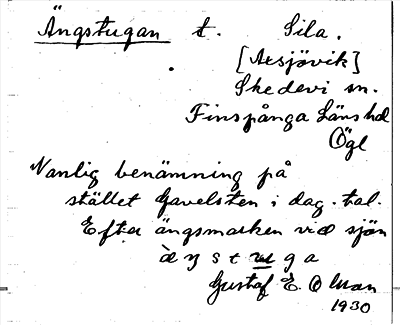 Ängstugan t. Sila.
[Arsjövik]
Skedevi sn.
Finspånga Läns hd
Ögl
Vanlig benämning på
stället Gavelsten i dag. tal.
Efter ängsmarken vid sjön
Gustaf E. Olsson
1930